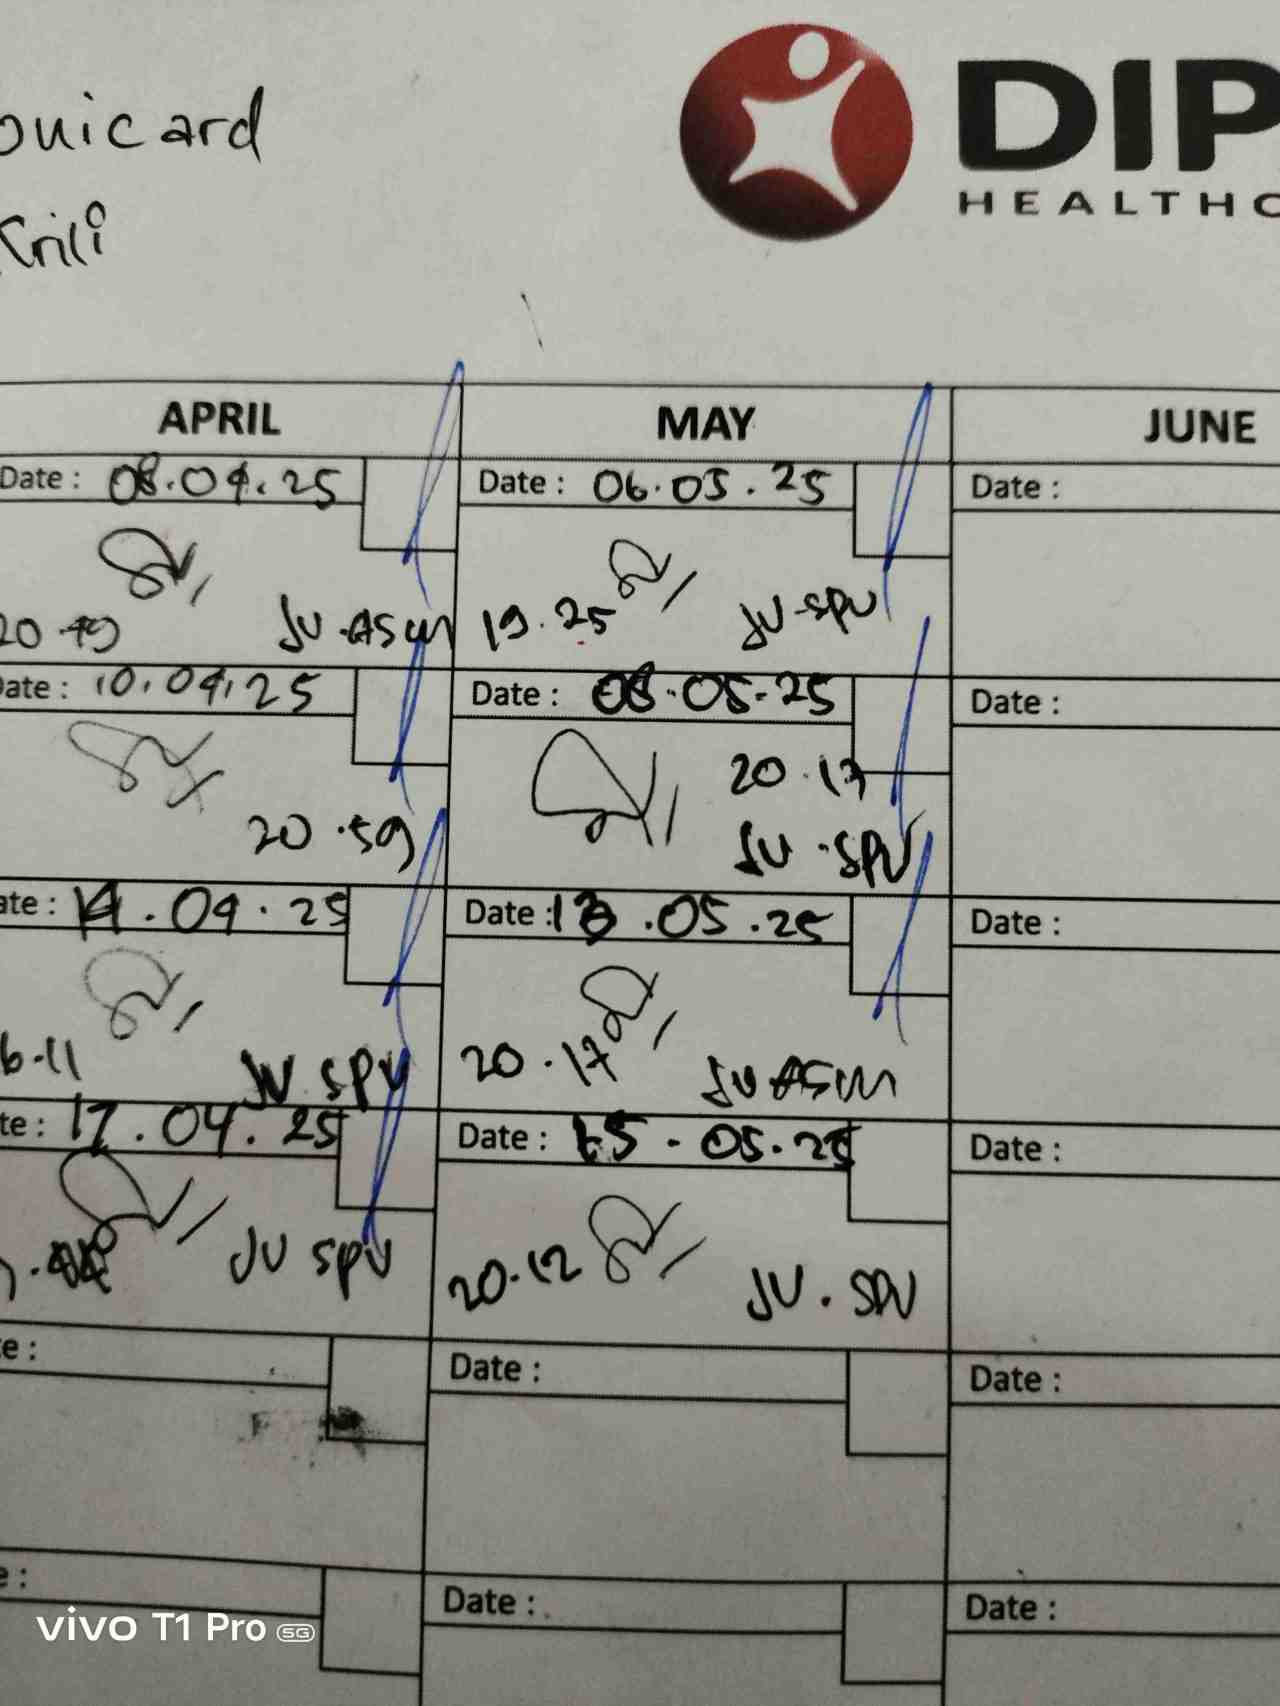 ouicard
Krili
DIP
HEALTHC
APRIL MAY JUNE
Date : 08.04.25 Date : 06.05.25 Date :
20 19 JU.ASM 19.25 JU-SPV
ate : 10.04.25 Date : 08.05.25 Date :
20.59 20.17
JU.SPV
ate : 14.04.25 Date : 13.05.25 Date :
6.11 JU SPV 20.17 JU ASM
te : 17.04.25 Date : 15-05.25 Date :
JU SPV 20.12 JU.SPV
e : Date : Date :
e : Date : Date :
vivo T1 Pro 5G